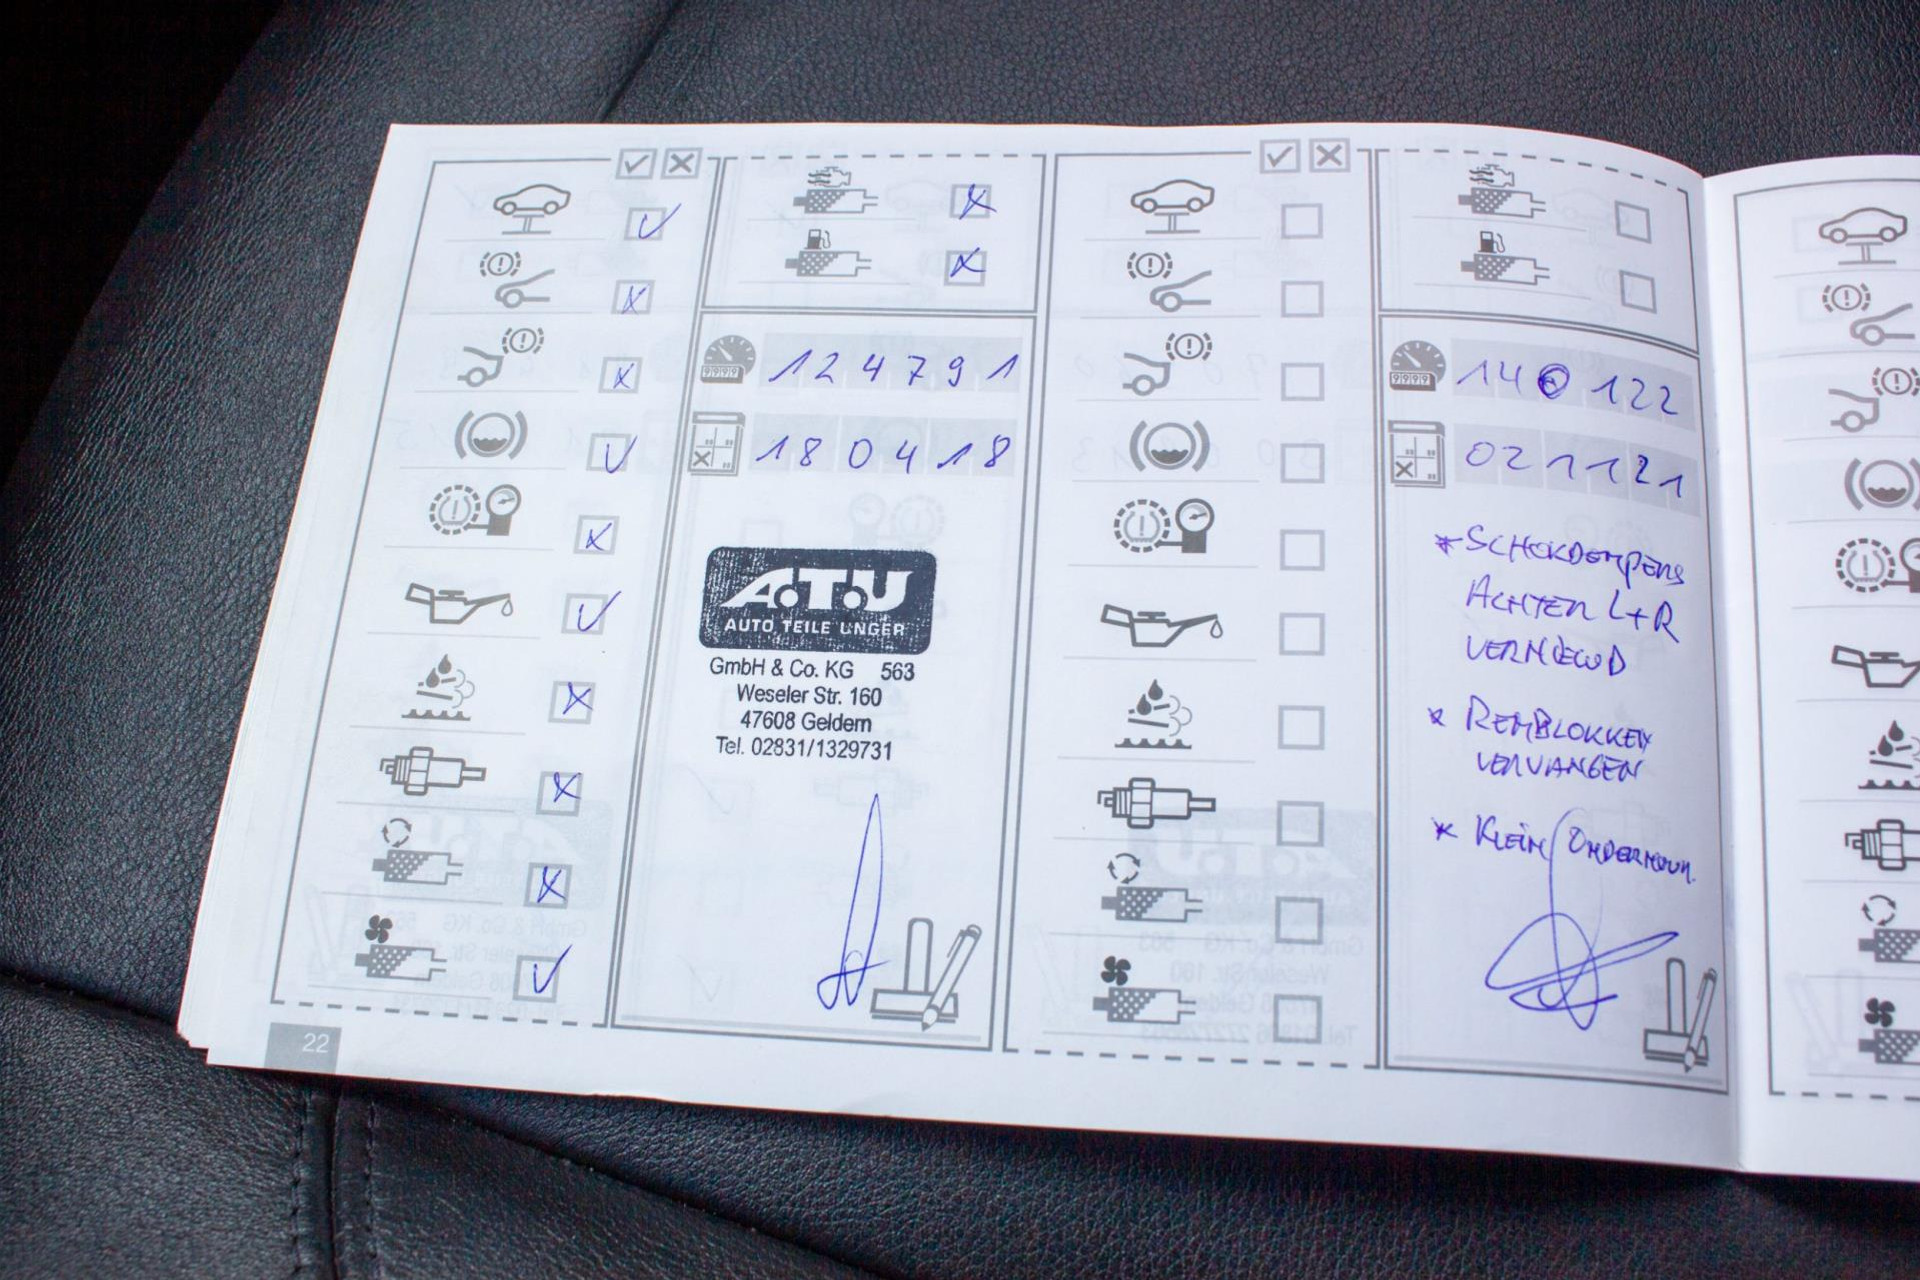 124791
180418
A.T.U
AUTO TEILE UNGER
GmbH & Co. KG 563
Weseler Str. 160
47608 Geldern
Tel. 02831/1329731
22
140122
021121
* SCHOKDEMPERS
ACHTER L+R
VERNIEUWD
* REMBLOKKEN
VERVANGEN
* KLEIN ONDERHOUD.